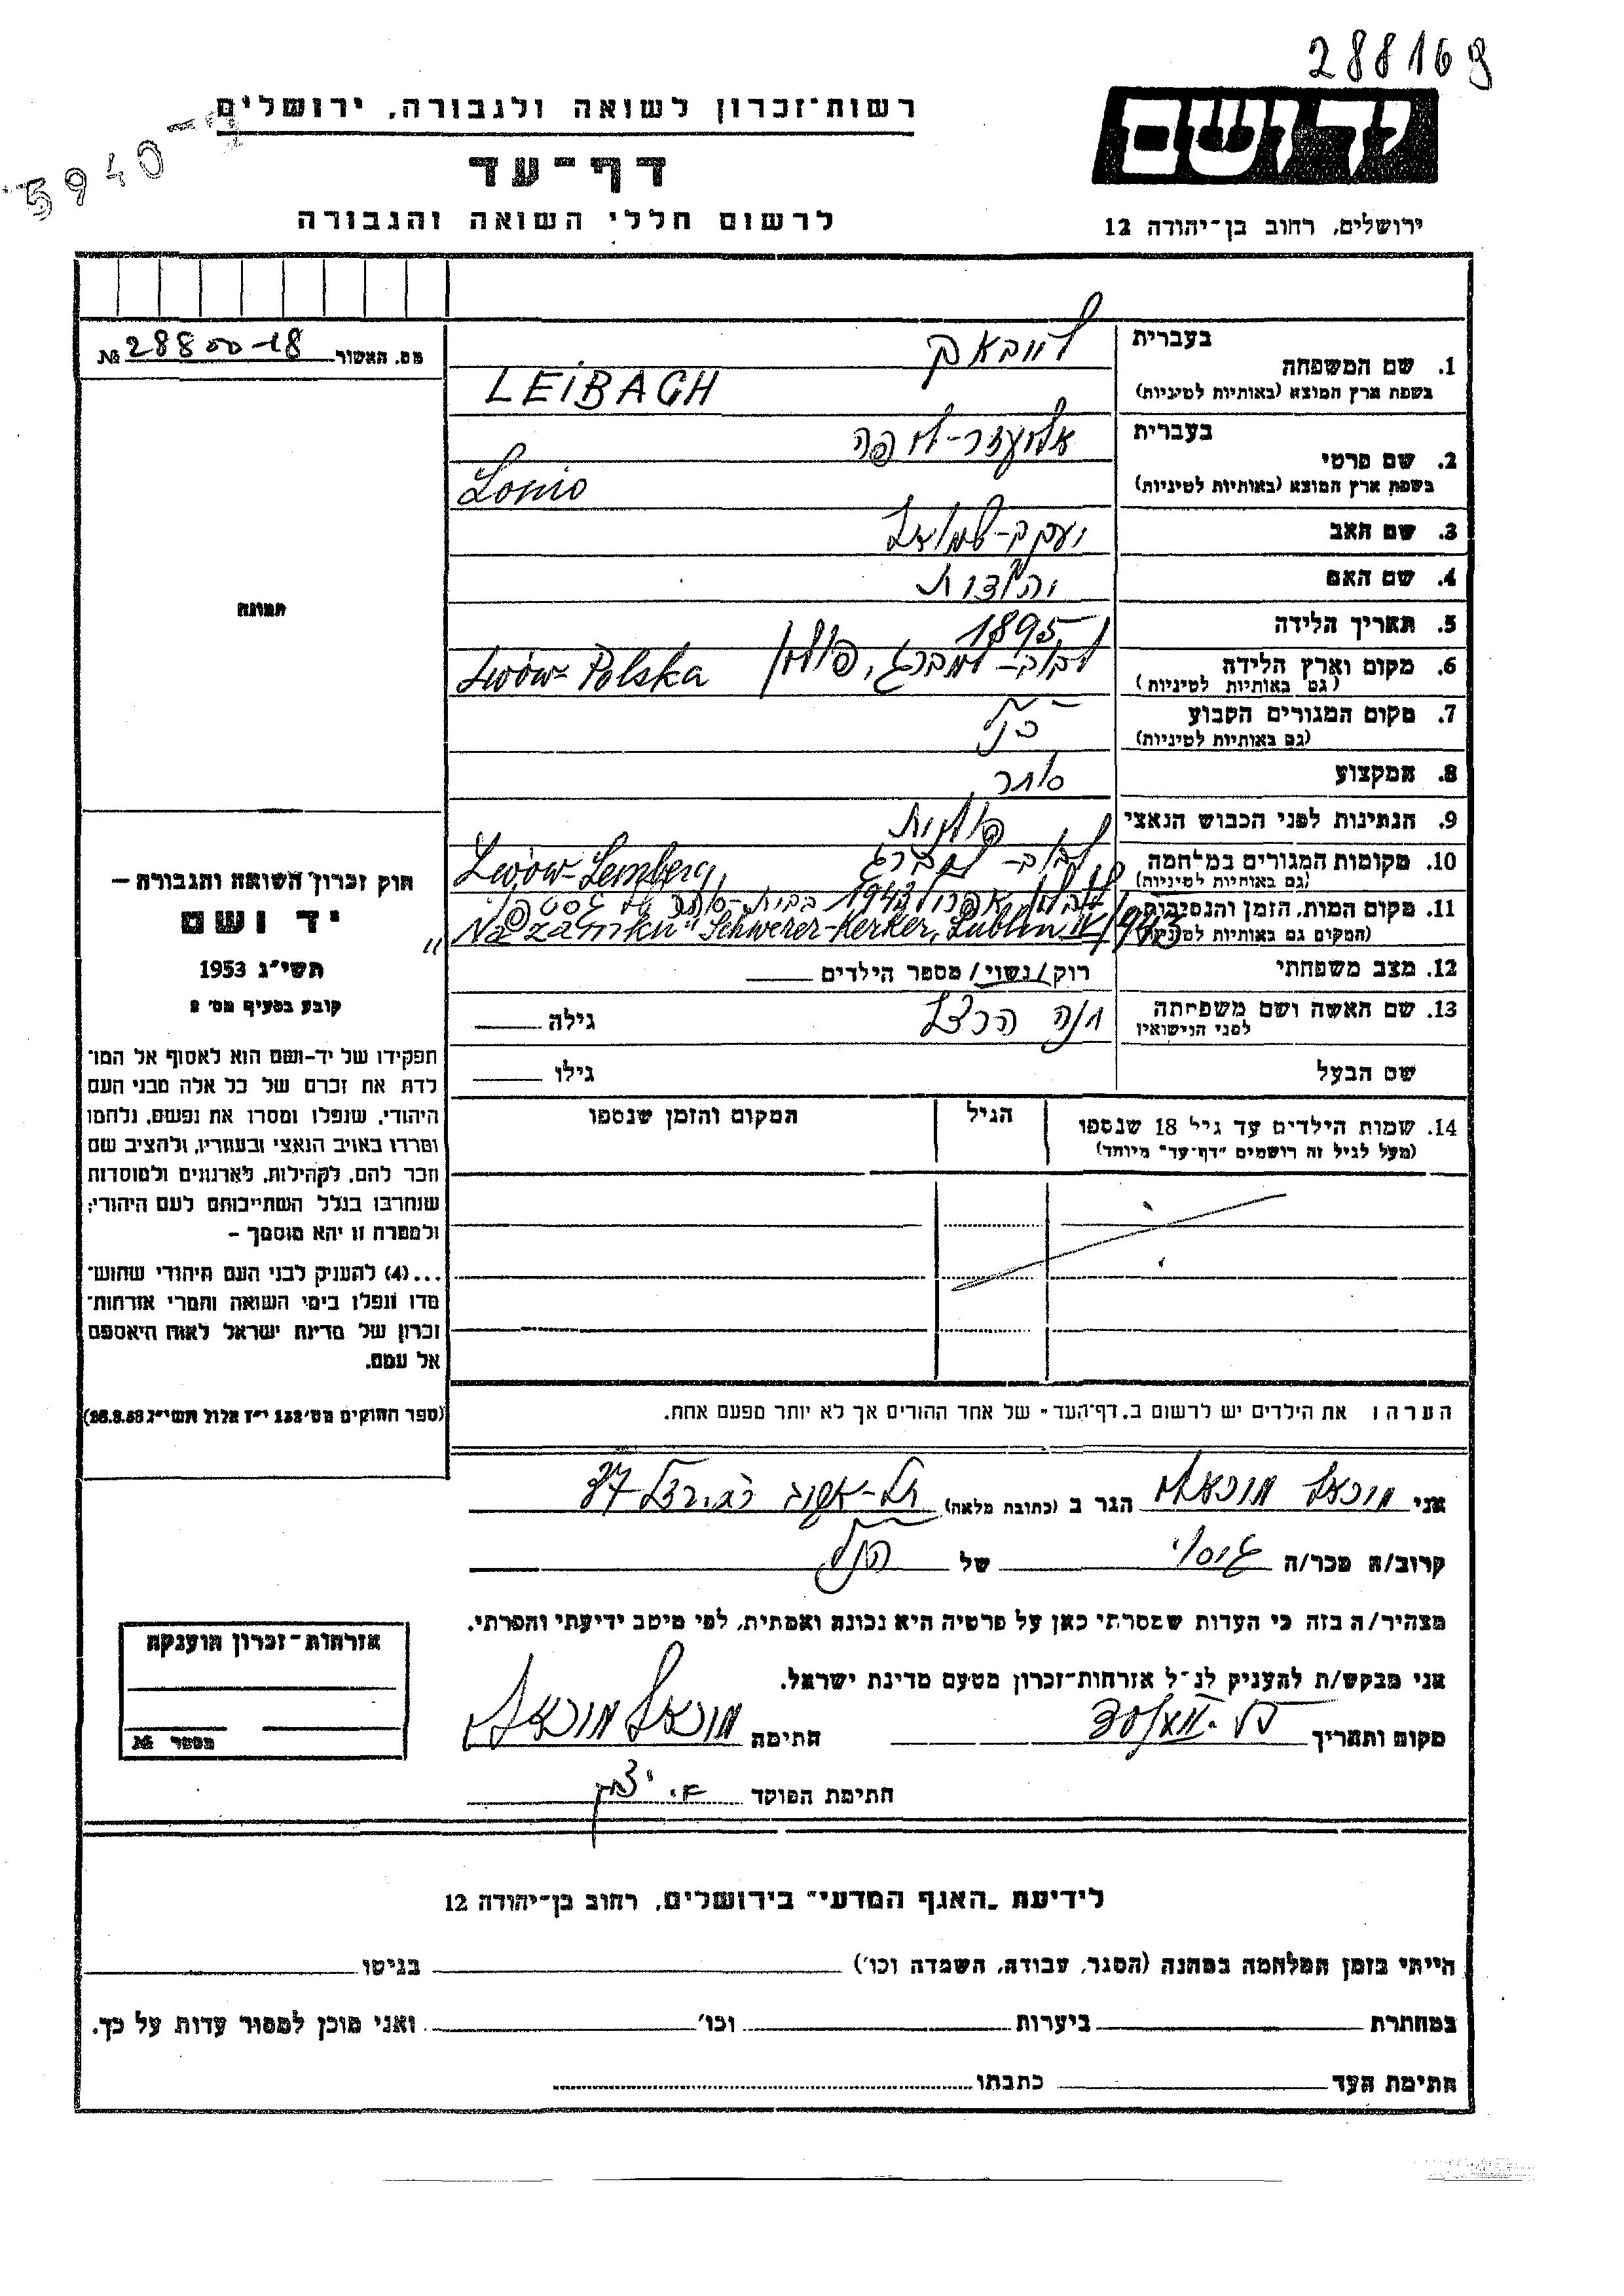 288169
5940-
רשות־זכרון לשואה ולגבורה, ירושלים
יד ושם
דף־עד
לרשום חללי השואה והגבורה
ירושלים, רחוב בן־יהודה 12
מס. האשור 28800-18 №
בעברית
לייבאך
1. שם המשפחה
בשפת ארץ המוצא (באותיות לטיניות)
LEIBACH
בעברית
אליעזר-
2. שם פרטי
בשפת ארץ המוצא (באותיות לטיניות)
Lonio
3. שם האב
יעקב-שמואל
4. שם האם
יהודית
5. תאריך הלידה
1895
6. מקום וארץ הלידה
(גם באותיות לטיניות)
לבוב-למברג, פולין Lwów-Polska
7. מקום המגורים הקבוע
(גם באותיות לטיניות)
כנ"ל
8. המקצוע
סוחר
9. הנתינות לפני הכבוש הנאצי
פולנית
10. מקומות המגורים במלחמה
(גם באותיות לטיניות)
לבוב-למברג Lwów-Lemberg
11. מקום המות, הזמן והנסיבות
(המקום גם באותיות לטיניות)
לובלין אפריל 1943 בבית-סוהר של גסטפו
"Na zamku" Schwerer-Kerker, Lublin IV/1943
12. מצב משפחתי
רוק/נשוי/ מספר הילדים
13. שם האשה ושם משפחתה
לפני הנישואין
חנה הרצל
גילה
שם הבעל
גילו
תמונה
14. שמות הילדים עד גיל 18 שנספו
(מעל לגיל זה רושמים "דף־עד" מיוחד)
הגיל
המקום והזמן שנספו
חוק זכרון השואה והגבורה —
יד ושם
תשי״ג 1953
קובע בסעיף מס׳ 2
תפקידו של יד-ושם הוא לאסוף אל המו־
לדת את זכרם של כל אלה מבני העם
היהודי, שנפלו ומסרו את נפשם, נלחמו
ומרדו באויב הנאצי ובעוזריו, ולהציב שם
וזכר להם, לקהילות, לארגונים ולמוסדות
שנחרבו בגלל השתייכותם לעם היהודי;
ולמטרה זו יהא מוסמך —
...(4) להעניק לבני העם היהודי שהוש־
מדו ונפלו בימי השואה והמרי אזרחות־
זכרון של מדינת ישראל לאות היאספם
אל עמם.
(ספר החוקים מס׳ 132 י״ז אלול תשי״ג 28.8.53)
הערה: את הילדים יש לרשום ב„דף־העד״ של אחד ההורים אך לא יותר מפעם אחת.
אני מיכאל הגר ב (כתובת מלאה) תל-אביב
קרוב/ה מכר/ה גיסו של הנ"ל
מצהיר/ה בזה כי העדות שמסרתי כאן על פרטיה היא נכונה ואמתית, לפי מיטב ידיעתי והכרתי.
אני מבקש/ת להעניק לנ״ל אזרחות־זכרון מטעם מדינת ישראל.
מקום ותאריך
חתימה מיכאל
חתימת הפוקד
אזרחות־זכרון הוענקה
מספר №
לידיעת „האגף המדעי״ בירושלים, רחוב בן־יהודה 12
הייתי בזמן המלחמה במחנה (הסגר, עבודה, השמדה וכו׳)
בגיטו
במחתרת
ביערות
וכו׳
ואני מוכן למסור עדות על כך.
חתימת העד
כתבתו